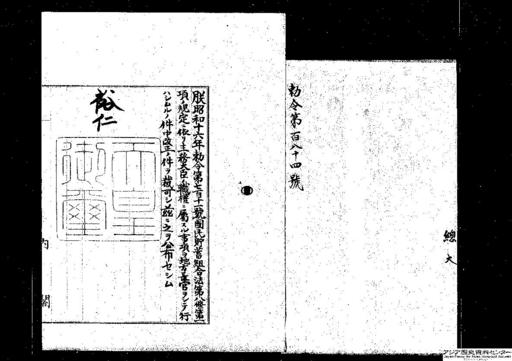 勅令第百八十四號
總大
朕昭和十六年勅令第七百十一號國民貯蓄組合法第八條第一
項ノ規定ニ依リ主務大臣ノ職權ニ屬スル事項ヲ地方長官ヲシテ行
ハシムルノ件中改正ノ件ヲ裁可シ茲ニ之ヲ公布セシム
裕仁
天皇御璽
内閣
アジア歴史資料センター